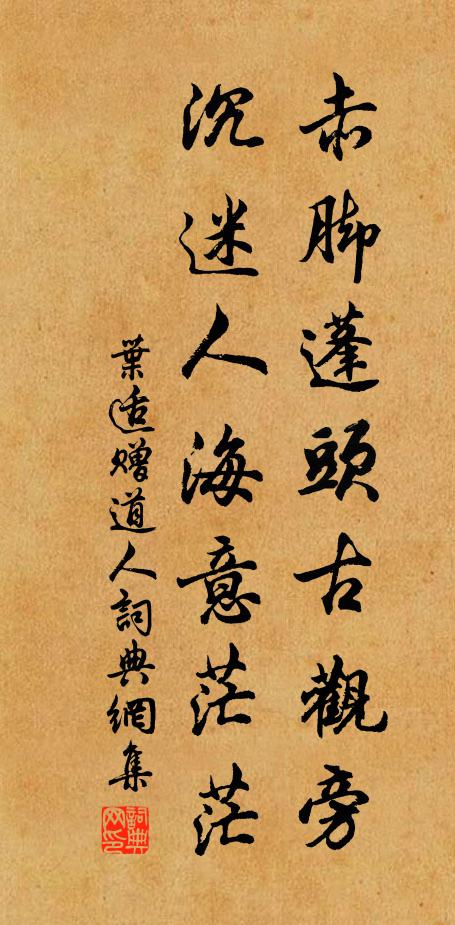 赤脚蓬頭古觀旁
沉迷人海意茫茫
葉适贈道人詞典網集
詞典网印